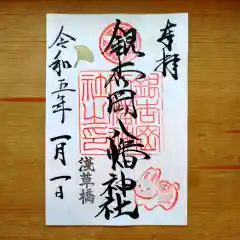 奉拝
銀杏岡八幡神社
浅草橋
令和五年 一月一日